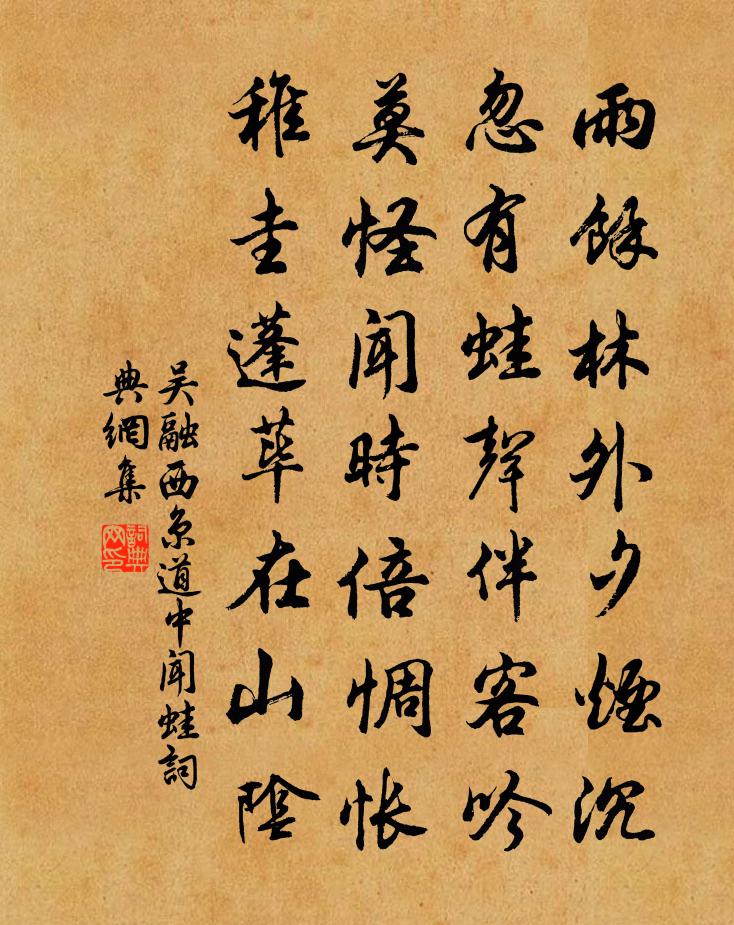 雨餘林外夕煙沉
忽有蛙聲伴客吟
莫怪聞時倍惆悵
稚圭蓬蓽在山陰
吴融西京道中聞蛙詞
典網集
詞典
网印